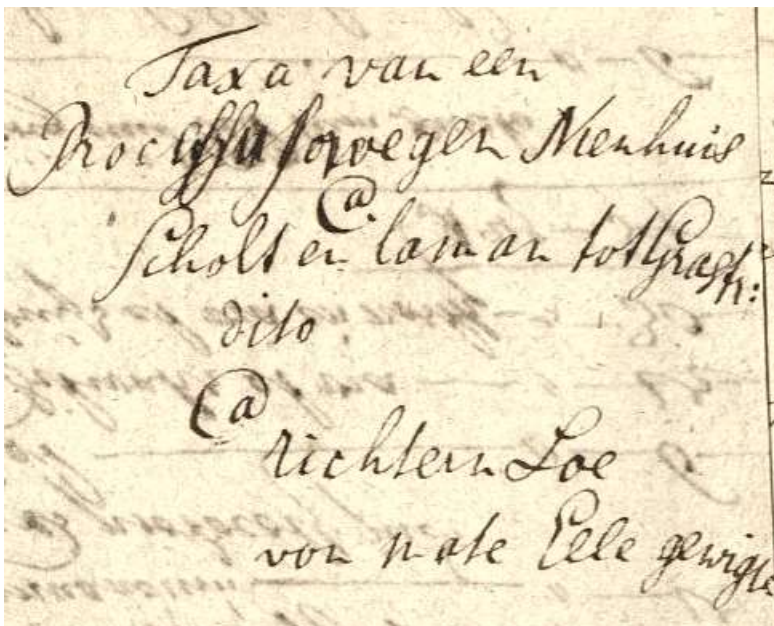 Taxa van een
Processu sorwegen Nienhuis
Ca
Scholt en laman tot Grastr:
dito
Ca
richtern Loe
von mate Elle gewigte